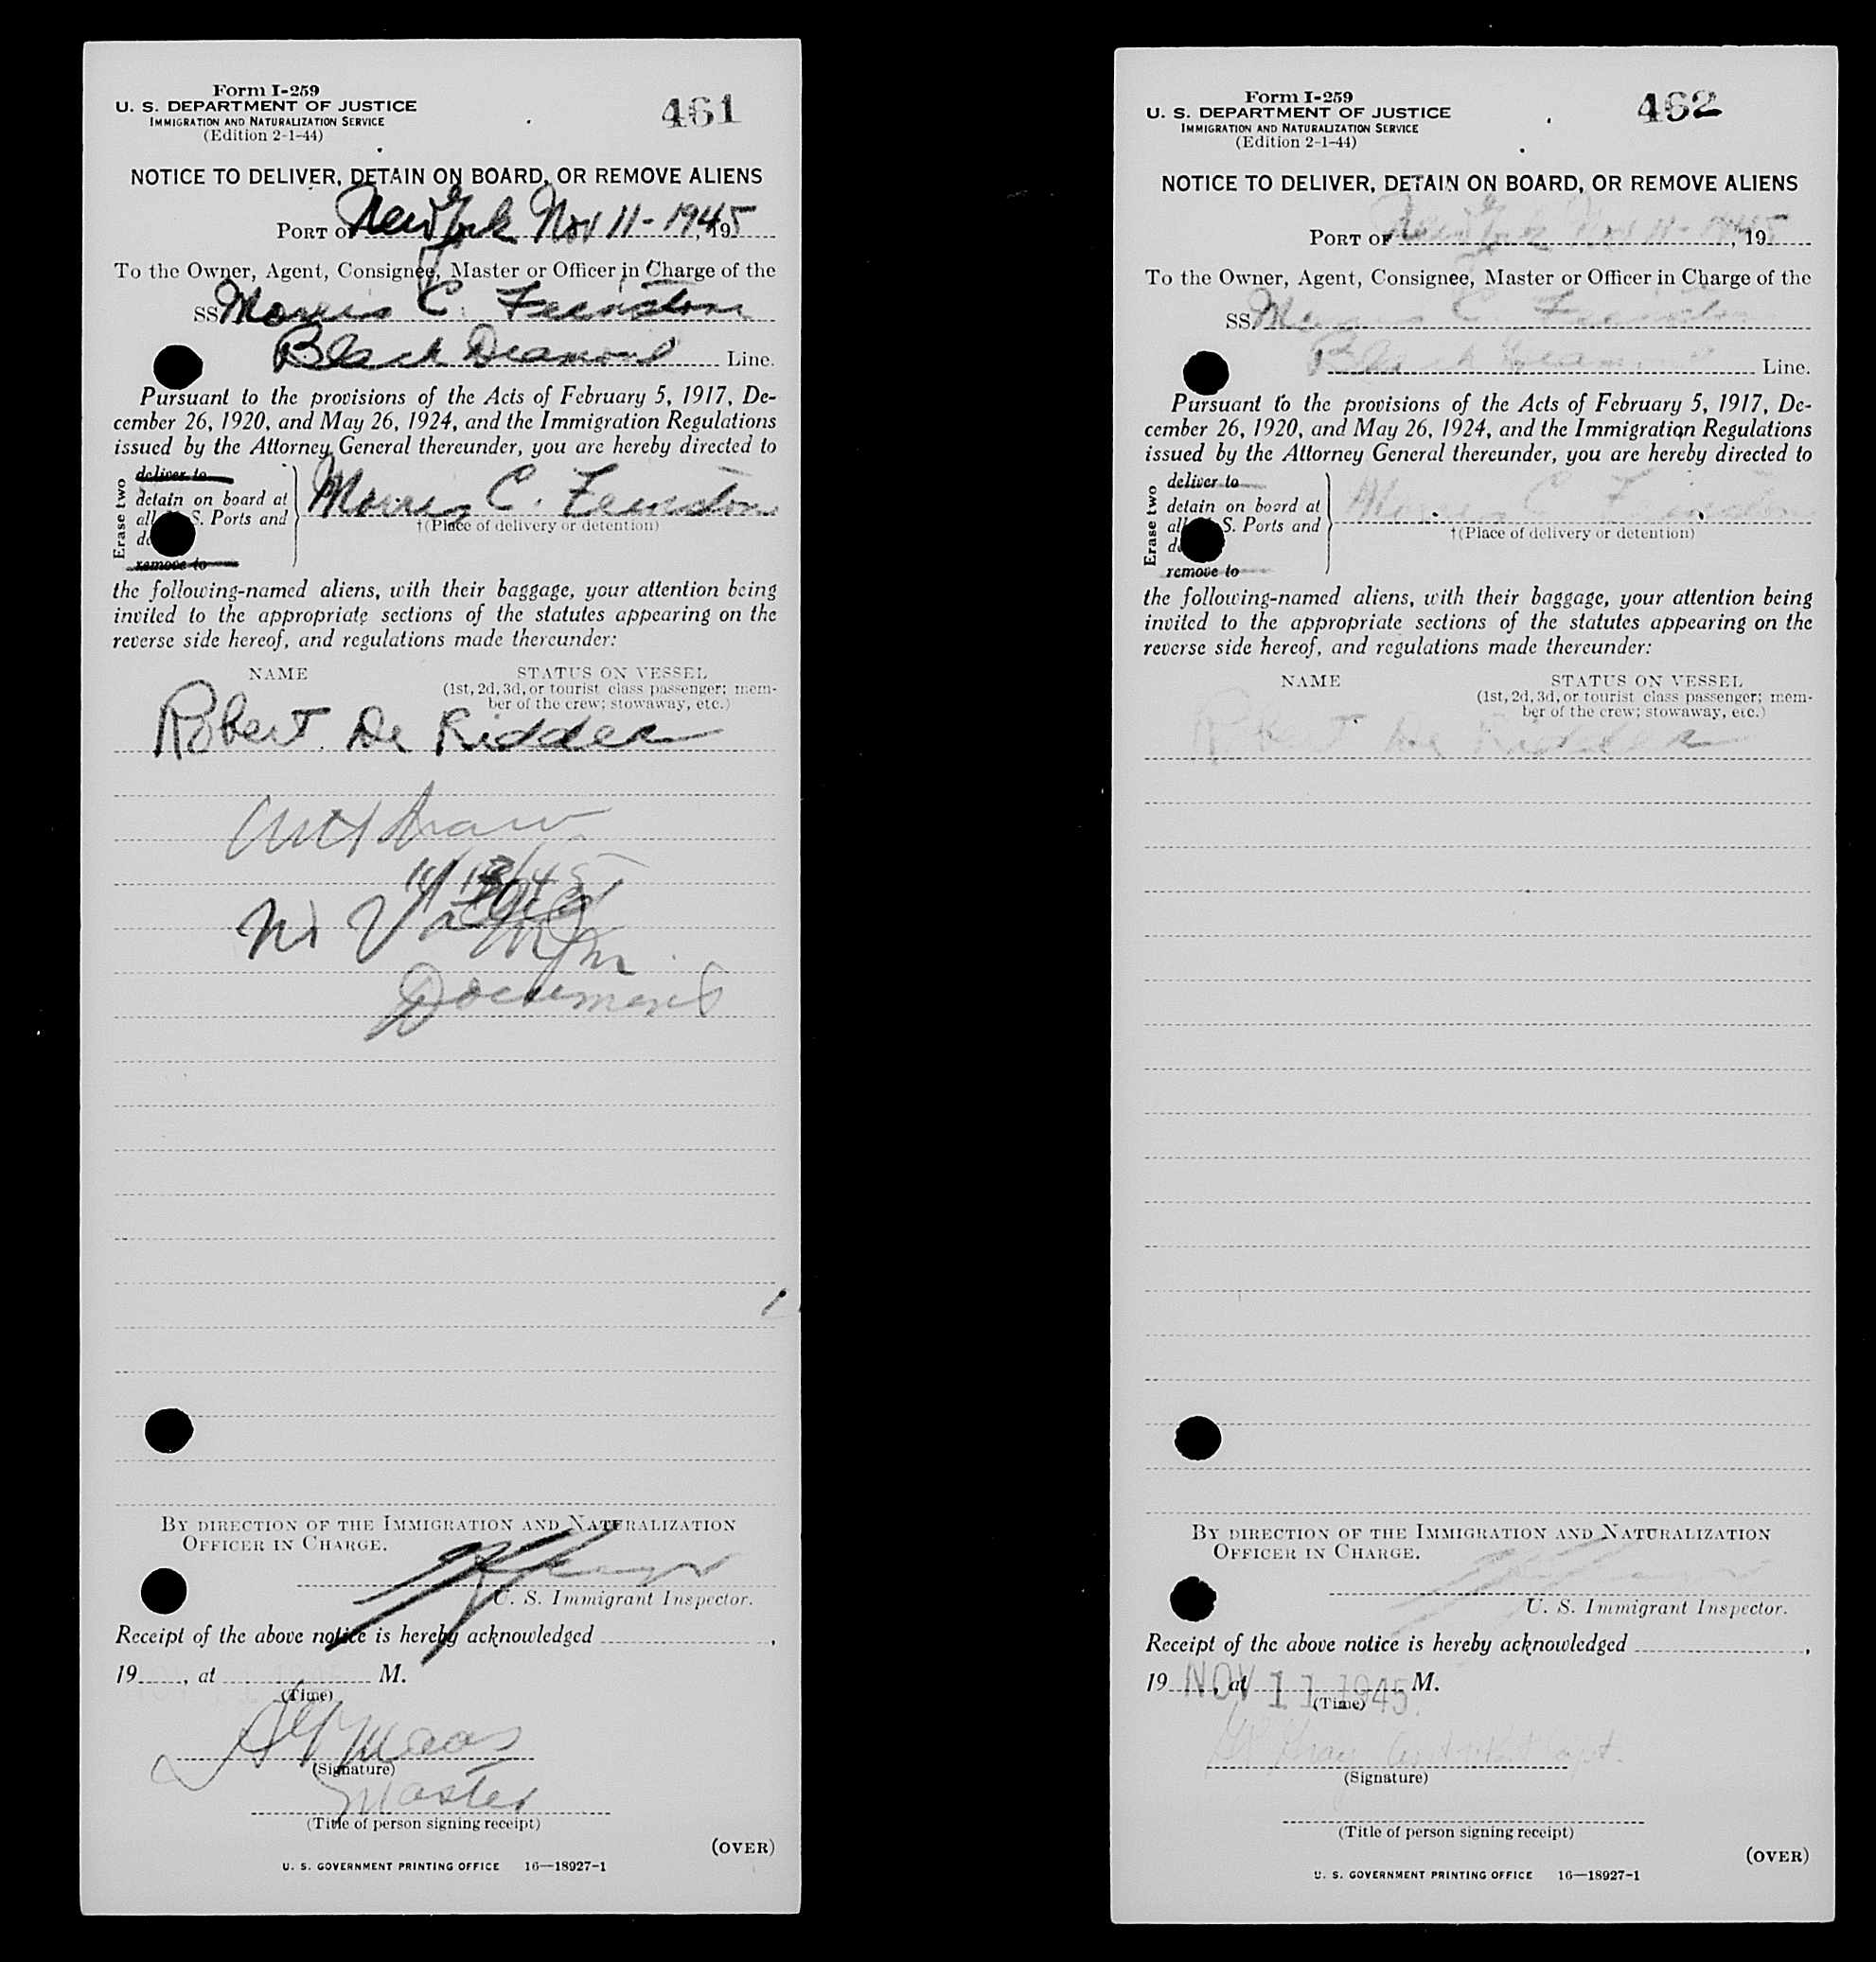 Form I-259
U. S. DEPARTMENT OF JUSTICE
IMMIGRATION AND NATURALIZATION SERVICE
(Edition 2-1-44)
461
NOTICE TO DELIVER, DETAIN ON BOARD, OR REMOVE ALIENS
PORT OF New York Nov 11-1945, 195
To the Owner, Agent, Consignee, Master or Officer in Charge of the
SS Morris C. Feinstone
Black Diamond Line.
Pursuant to the provisions of the Acts of February 5, 1917, De-
cember 26, 1920, and May 26, 1924, and the Immigration Regulations
issued by the Attorney General thereunder, you are hereby directed to
Erase two
deliver to
detain on board at
all S. Ports and
remove to
Morris C. Feinstone
†(Place of delivery or detention)
the following-named aliens, with their baggage, your attention being
invited to the appropriate sections of the statutes appearing on the
reverse side hereof, and regulations made thereunder:
NAME
STATUS ON VESSEL
(1st, 2d, 3d, or tourist class passenger; mem-
ber of the crew; stowaway, etc.)
Robert De Ridder
Withdrawn
11/13/45
Document
BY DIRECTION OF THE IMMIGRATION AND NATURALIZATION
OFFICER IN CHARGE.
U. S. Immigrant Inspector.
Receipt of the above notice is hereby acknowledged ,
19 , at M.
(Time)
Maas
(Signature)
Master
(Title of person signing receipt)
(OVER)
U. S. GOVERNMENT PRINTING OFFICE 16—18927-1
Form I-259
U. S. DEPARTMENT OF JUSTICE
IMMIGRATION AND NATURALIZATION SERVICE
(Edition 2-1-44)
462
NOTICE TO DELIVER, DETAIN ON BOARD, OR REMOVE ALIENS
PORT OF New York Nov 11-1945, 195
To the Owner, Agent, Consignee, Master or Officer in Charge of the
SS Morris C. Feinstone
Black Diamond Line.
Pursuant to the provisions of the Acts of February 5, 1917, De-
cember 26, 1920, and May 26, 1924, and the Immigration Regulations
issued by the Attorney General thereunder, you are hereby directed to
Erase two
deliver to
detain on board at
all S. Ports and
remove to
Morris C. Feinstone
†(Place of delivery or detention)
the following-named aliens, with their baggage, your attention being
invited to the appropriate sections of the statutes appearing on the
reverse side hereof, and regulations made thereunder:
NAME
STATUS ON VESSEL
(1st, 2d, 3d, or tourist class passenger; mem-
ber of the crew; stowaway, etc.)
Robert De Ridder
BY DIRECTION OF THE IMMIGRATION AND NATURALIZATION
OFFICER IN CHARGE.
U. S. Immigrant Inspector.
Receipt of the above notice is hereby acknowledged ,
19 , at M.
NOV 11 1945
(Time)
Gray
(Signature)
(Title of person signing receipt)
(OVER)
U. S. GOVERNMENT PRINTING OFFICE 16—18927-1